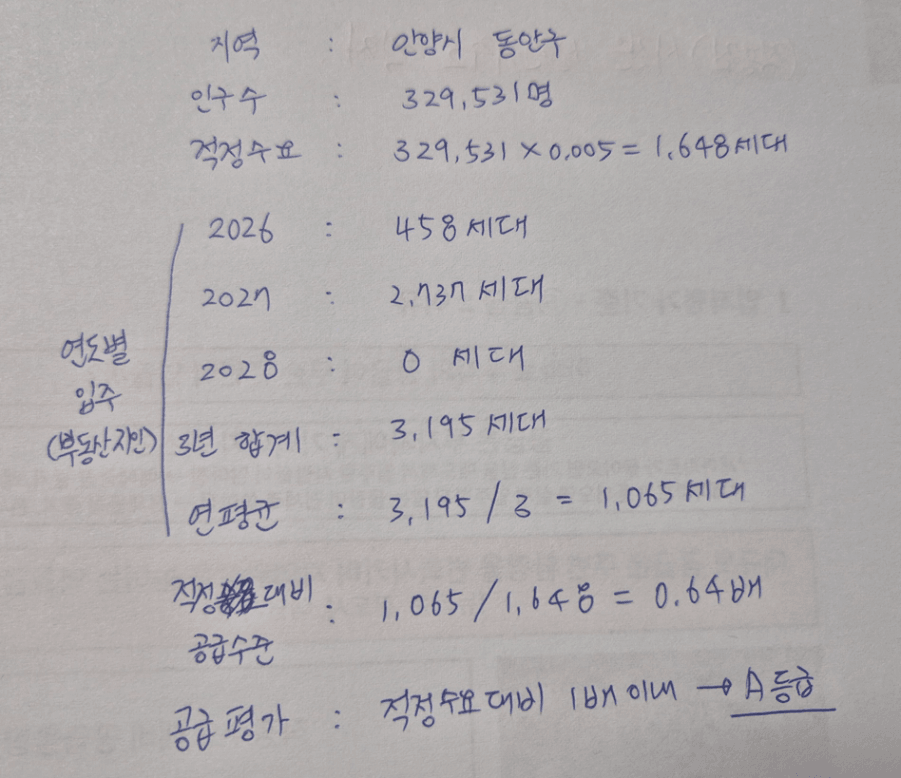 지역 : 안양시 동안구
인구수 : 329,531명
적정수요 : 329,531 × 0.005 = 1,648세대
2026 : 458세대
2027 : 2,737세대
연도별 입주 (부동산지인)
2028 : 0 세대
3년 합계 : 3,195세대
연평균 : 3,195 / 3 = 1,065세대
적정 대비 공급수준 : 1,065 / 1,648 = 0.64배
공급평가 : 적정수요대비 1배 이내 → A등급